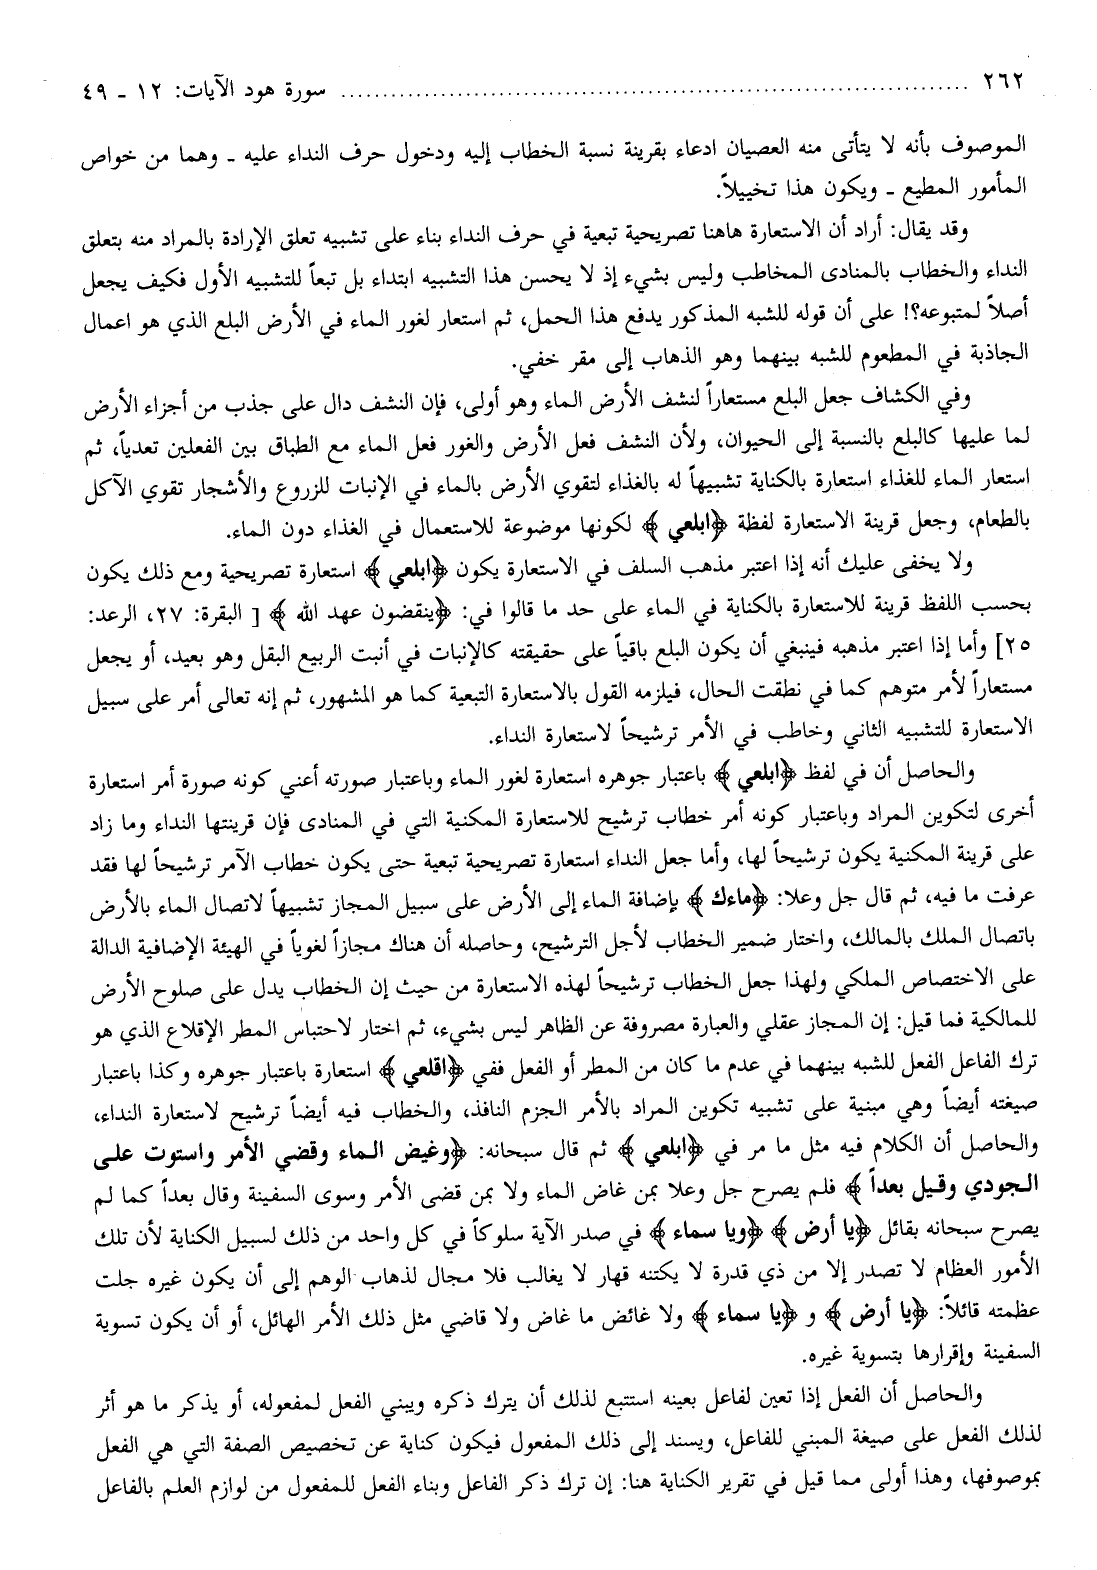 ٢٦٢ ........................................................................ سورة هود الآيات: ١٢ ـ ٤٩
الموصوف بأنه لا يتأتى منه العصيان ادعاء بقرينة نسبة الخطاب إليه ودخول حرف النداء عليه ـ وهما من خواص
المأمور المطيع ـ ويكون هذا تخييلاً.
وقد يقال: أراد أن الاستعارة هاهنا تصريحية تبعية في حرف النداء بناء على تشبيه تعلق الإرادة بالمراد منه بتعلق
النداء والخطاب بالمنادى المخاطب وليس بشيء إذ لا يحسن هذا التشبيه ابتداء بل تبعاً للتشبيه الأول فكيف يجعل
أصلاً لمتبوعه؟! على أن قوله للشبه المذكور يدفع هذا الحمل، ثم استعار لغور الماء في الأرض البلع الذي هو اعمال
الجاذبة في المطعوم للشبه بينهما وهو الذهاب إلى مقر خفي.
وفي الكشاف جعل البلع مستعاراً لنشف الأرض الماء وهو أولى، فإن النشف دال على جذب من أجزاء الأرض
لما عليها كالبلع بالنسبة إلى الحيوان، ولأن النشف فعل الأرض والغور فعل الماء مع الطباق بين الفعلين تعدياً، ثم
استعار الماء للغذاء استعارة بالكناية تشبيهاً له بالغذاء لتقوي الأرض بالماء في الإنبات للزروع والأشجار تقوي الآكل
بالطعام، وجعل قرينة الاستعارة لفظة ﴿ابلعي﴾ لكونها موضوعة للاستعمال في الغذاء دون الماء.
ولا يخفى عليك أنه إذا اعتبر مذهب السلف في الاستعارة يكون ﴿ابلعي﴾ استعارة تصريحية ومع ذلك يكون
بحسب اللفظ قرينة للاستعارة بالكناية في الماء على حد ما قالوا في: ﴿ينقضون عهد الله﴾ [ البقرة: ٢٧، الرعد:
٢٥] وأما إذا اعتبر مذهبه فينبغي أن يكون البلع باقياً على حقيقته كالإنبات في أنبت الربيع البقل وهو بعيد، أو يجعل
مستعاراً لأمر متوهم كما في نطقت الحال، فيلزمه القول بالاستعارة التبعية كما هو المشهور، ثم إنه تعالى أمر على سبيل
الاستعارة للتشبيه الثاني وخاطب في الأمر ترشيحاً لاستعارة النداء.
والحاصل أن في لفظ ﴿ابلعي﴾ باعتبار جوهره استعارة لغور الماء وباعتبار صورته أعني كونه صورة أمر استعارة
أخرى لتكوين المراد وباعتبار كونه أمر خطاب ترشيح للاستعارة المكنية التي في المنادى فإن قرينتها النداء وما زاد
على قرينة المكنية يكون ترشيحاً لها، وأما جعل النداء استعارة تصريحية تبعية حتى يكون خطاب الآمر ترشيحاً لها فقد
عرفت ما فيه، ثم قال جل وعلا: ﴿ماءك﴾ بإضافة الماء إلى الأرض على سبيل المجاز تشبيهاً لاتصال الماء بالأرض
باتصال الملك بالمالك، واختار ضمير الخطاب لأجل الترشيح، وحاصله أن هناك مجازاً لغوياً في الهيئة الإضافية الدالة
على الاختصاص الملكي ولهذا جعل الخطاب ترشيحاً لهذه الاستعارة من حيث إن الخطاب يدل على صلوح الأرض
للمالكية فما قيل: إن المجاز عقلي والعبارة مصروفة عن الظاهر ليس بشيء، ثم اختار لاحتباس المطر الإقلاع الذي هو
ترك الفاعل الفعل للشبه بينهما في عدم ما كان من المطر أو الفعل ففي ﴿اقلعي﴾ استعارة باعتبار جوهره وكذا باعتبار
صيغته أيضاً وهي مبنية على تشبيه تكوين المراد بالأمر الجزم النافذ، والخطاب فيه أيضاً ترشيح لاستعارة النداء،
والحاصل أن الكلام فيه مثل ما مر في ﴿ابلعي﴾ ثم قال سبحانه: ﴿وغيض الماء وقضي الأمر واستوت على
الجودي وقيل بعداً﴾ فلم يصرح جل وعلا بمن غاض الماء ولا بمن قضى الأمر وسوى السفينة وقال بعداً كما لم
يصرح سبحانه بقائل ﴿يا أرض﴾ ﴿ويا سماء﴾ في صدر الآية سلوكاً في كل واحد من ذلك لسبيل الكناية لأن تلك
الأمور العظام لا تصدر إلا من ذي قدرة لا يكتنه قهار لا يغالب فلا مجال لذهاب الوهم إلى أن يكون غيره جلت
عظمته قائلاً: ﴿يا أرض﴾ و ﴿يا سماء﴾ ولا غائض ما غاض ولا قاضي مثل ذلك الأمر الهائل، أو أن يكون تسوية
السفينة وإقرارها بتسوية غيره.
والحاصل أن الفعل إذا تعين لفاعل بعينه استتبع لذلك أن يترك ذكره ويبني الفعل لمفعوله، أو يذكر ما هو أثر
لذلك الفعل على صيغة المبني للفاعل، ويسند إلى ذلك المفعول فيكون كناية عن تخصيص الصفة التي هي الفعل
بموصوفها، وهذا أولى مما قيل في تقرير الكناية هنا: إن ترك ذكر الفاعل وبناء الفعل للمفعول من لوازم العلم بالفاعل